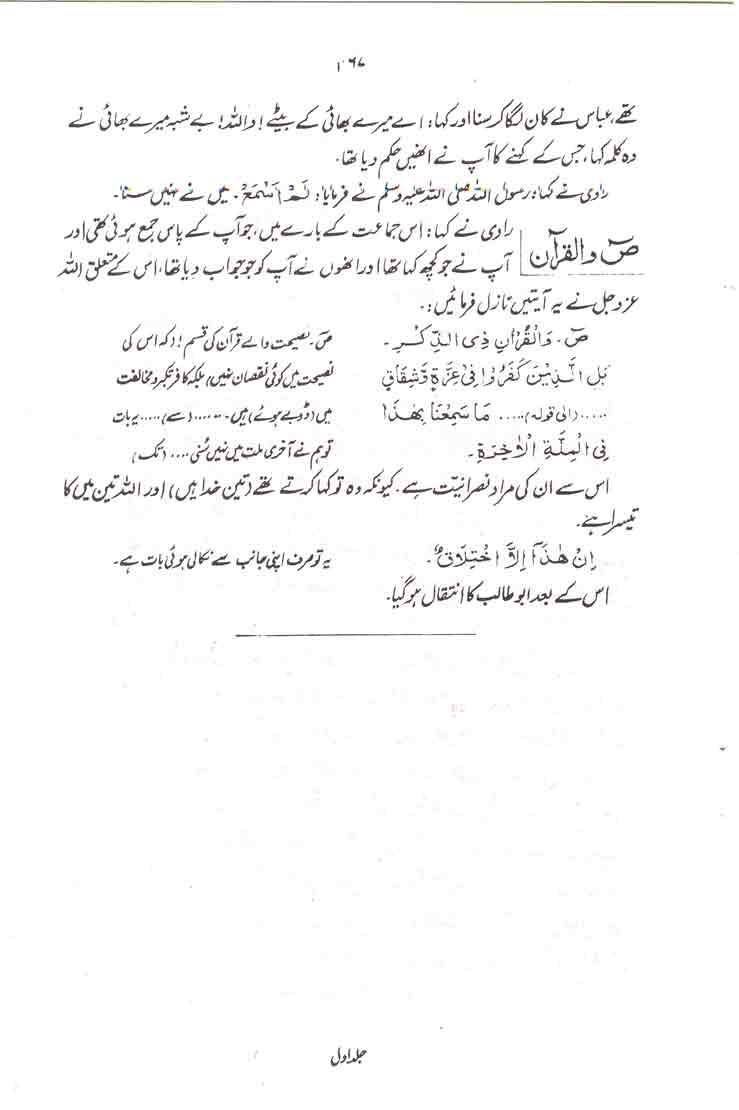 ۴۶۷
تھے، عباس نے کان لگا کر سنا اور کہا: اے میرے بھائی کے بیٹے! واللہ! بے شبہ میرے بھائی نے
وہ کلمہ کہا، جس کے کہنے کا آپ نے انھیں حکم دیا تھا۔
راوی نے کہا: رسول اللہ صلی اللہ علیہ وسلم نے فرمایا: لَمْ اَسْمَعْ۔ میں نے نہیں سنا۔
صٓ والقرآن
راوی نے کہا: اس جماعت کے بارے میں، جو آپ کے پاس جمع ہوئی تھی اور
آپ نے جو کچھ کہا تھا اور انھوں نے آپ کو جو جواب دیا تھا، اس کے متعلق اللہ
عزوجل نے یہ آیتیں نازل فرمائیں:۔
صٓ۔ وَالْقُرْاٰنِ ذِی الذِّکْرِ۔ صٓ۔ نصیحت والے قرآن کی قسم! (کہ اس کی
بَلِ الَّذِیْنَ کَفَرُوْا فِیْ عِزَّةٍ وَّشِقَاقٍ نصیحت میں کوئی نقصان نہیں) بلکہ کافر تکبر و مخالفت
.....(الی قولہ).... مَا سَمِعْنَا بِهٰذَا میں (ڈوبے ہوئے) ہیں۔......(سے).....یہ بات
فِی الْمِلَّةِ الْاٰخِرَةِ۔ تو ہم نے آخری ملت میں نہیں سُنی....(تک)
اس سے ان کی مراد نصرانیت ہے۔ کیونکہ وہ تو کہا کرتے تھے (تین خدا ہیں) اور اللہ تین میں کا
تیسرا ہے۔
اِنْ هٰذَآ اِلَّا اخْتِلَاقٌ۔ یہ تو صرف اپنی جانب سے نکالی ہوئی بات ہے۔
اس کے بعد ابو طالب کا انتقال ہو گیا۔
جلد اول